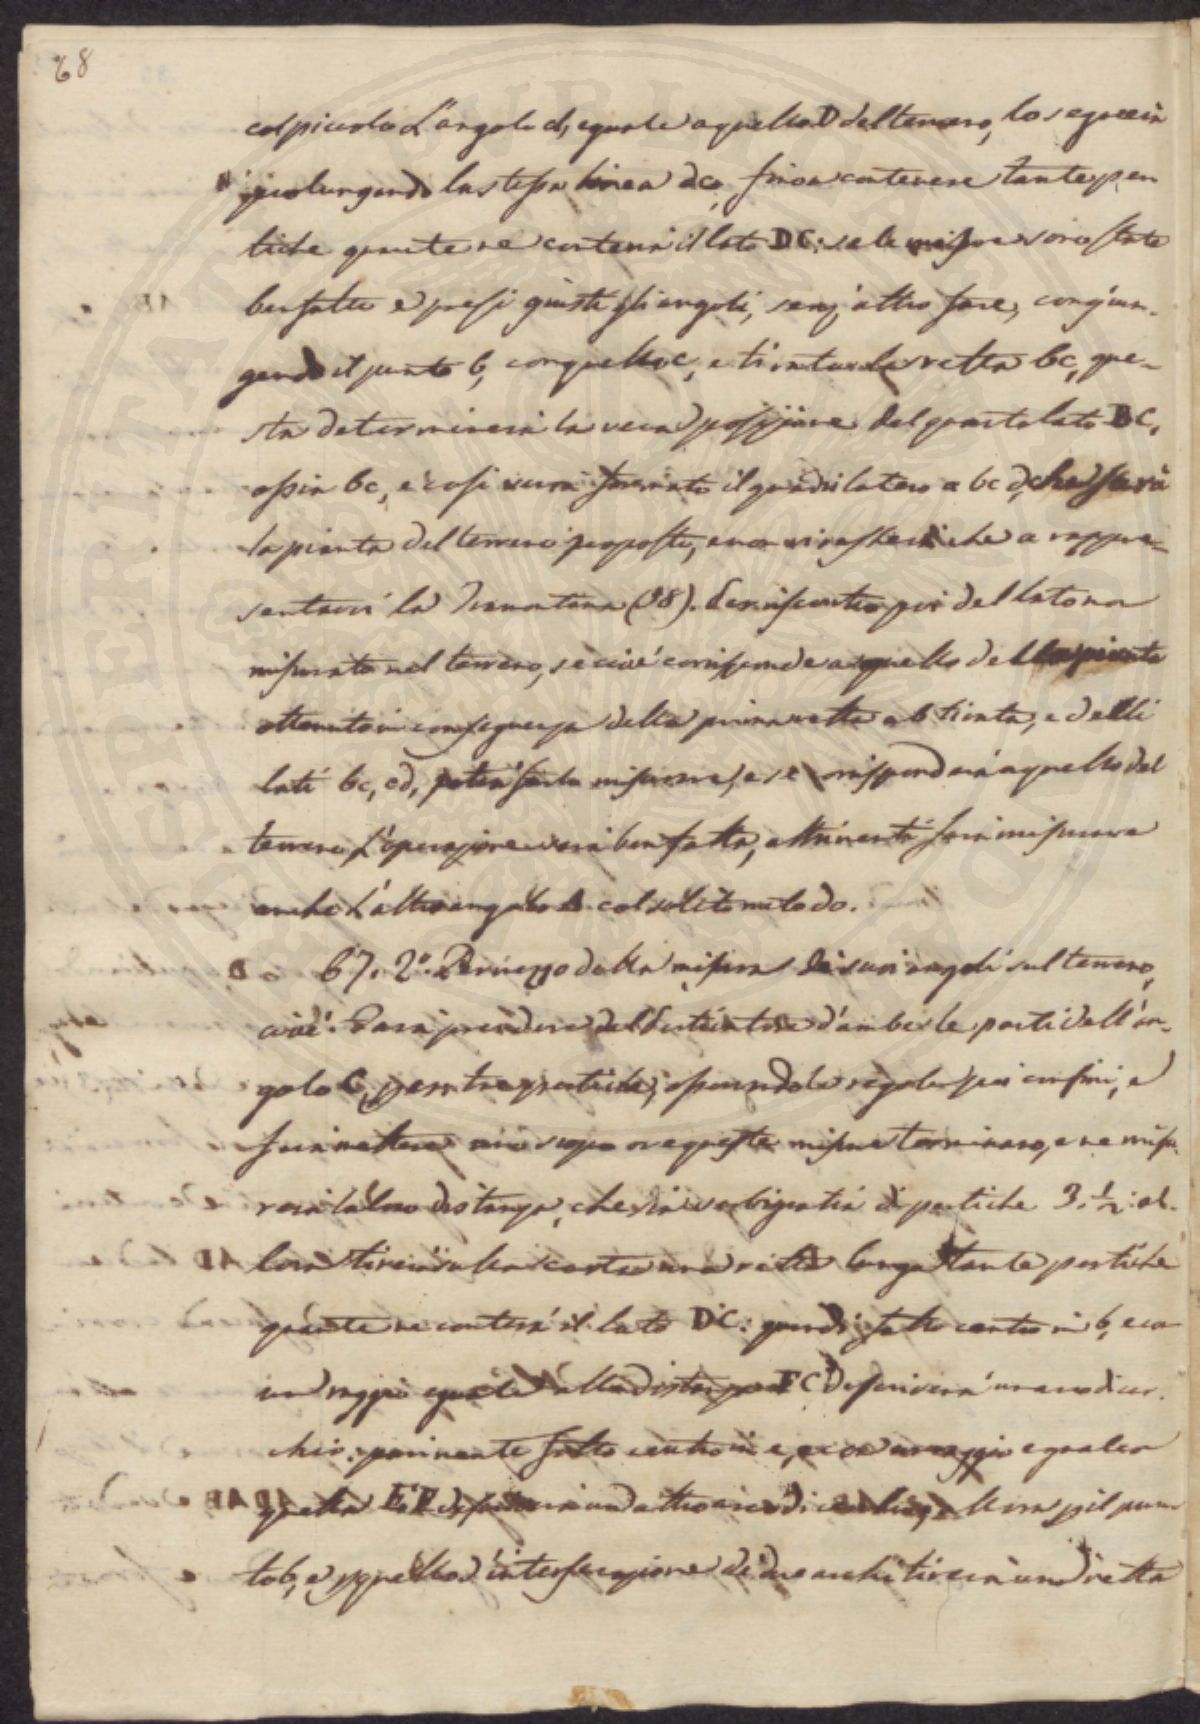 68
col piccolo L'angolo d, eguale a quello D del terreno, lo segnerà
prolungando la stessa linea dc, fino a contenere tante per
tiche quante ne conterrà il lato DC: se le misure sono state
ben fatte e presi giusti gli angoli, senz'altro fare, congiun-
gendo il punto b, con quello c, e tirata la retta bc, que-
sta determinerà la vera posizione del quarto lato BC,
ossia bc, e così verrà formato il quadrilatero a bc d, che sarà
la pianta del terreno proposto, e non vi resterà che a rappre-
sentarvi la Tramontana (28). poi del lato non
misurato nel terreno, se cioè corrisponde a quello della pianta
ottenuto in conseguenza della prima retta ab tirata, e delli
lati bc, cd, potrà farla misurare, e se corrisponderà a quello del
terreno, L'operazione sarà ben fatta, altrimenti farà misurare
anche L'altro angolo A col solito metodo.
67. 2.° Per mezzo della misura de' suoi angoli sul terreno,
cioè: Farà prendere dal d'ambe le parti dell'an-
golo C, per tre pertiche, pei confini, e
farà mettere uno scopo ove queste misure terminano, e ne misu-
rerà la loro distanza, che sia verbigratia di pertiche 3. 1/2: al-
lora tirerà sulla carta una retta lunga tante pertiche
quante ne conterà il lato DC: quindi fatto centro in b, e co
un raggio eguale alla distanza FC descriverà un arco di cer-
chio: parimente fatto centro in e, e con un raggio eguale a
quella EF descriverà un altro arco di cerchio, allora pel pun
to b, e pel quello d'intersecazione de' due archi tirerà una retta